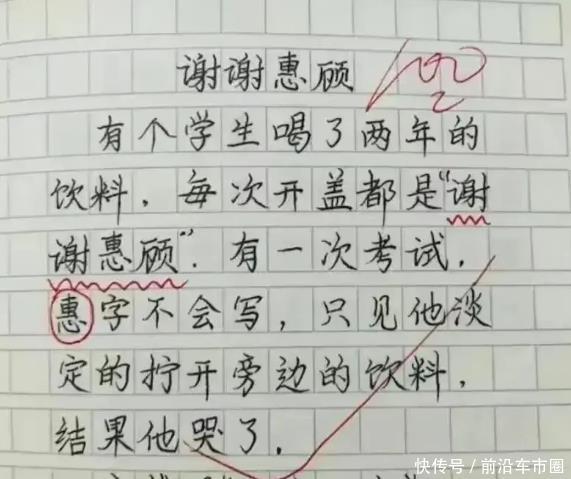 谢谢惠顾 100
有个学生喝了两年的
饮料，每次开盖都是“谢
谢惠顾”．有一次考试，
惠字不会写，只见他淡
定的拧开旁边的饮料，
结果他哭了．
快传号／前沿车市圈